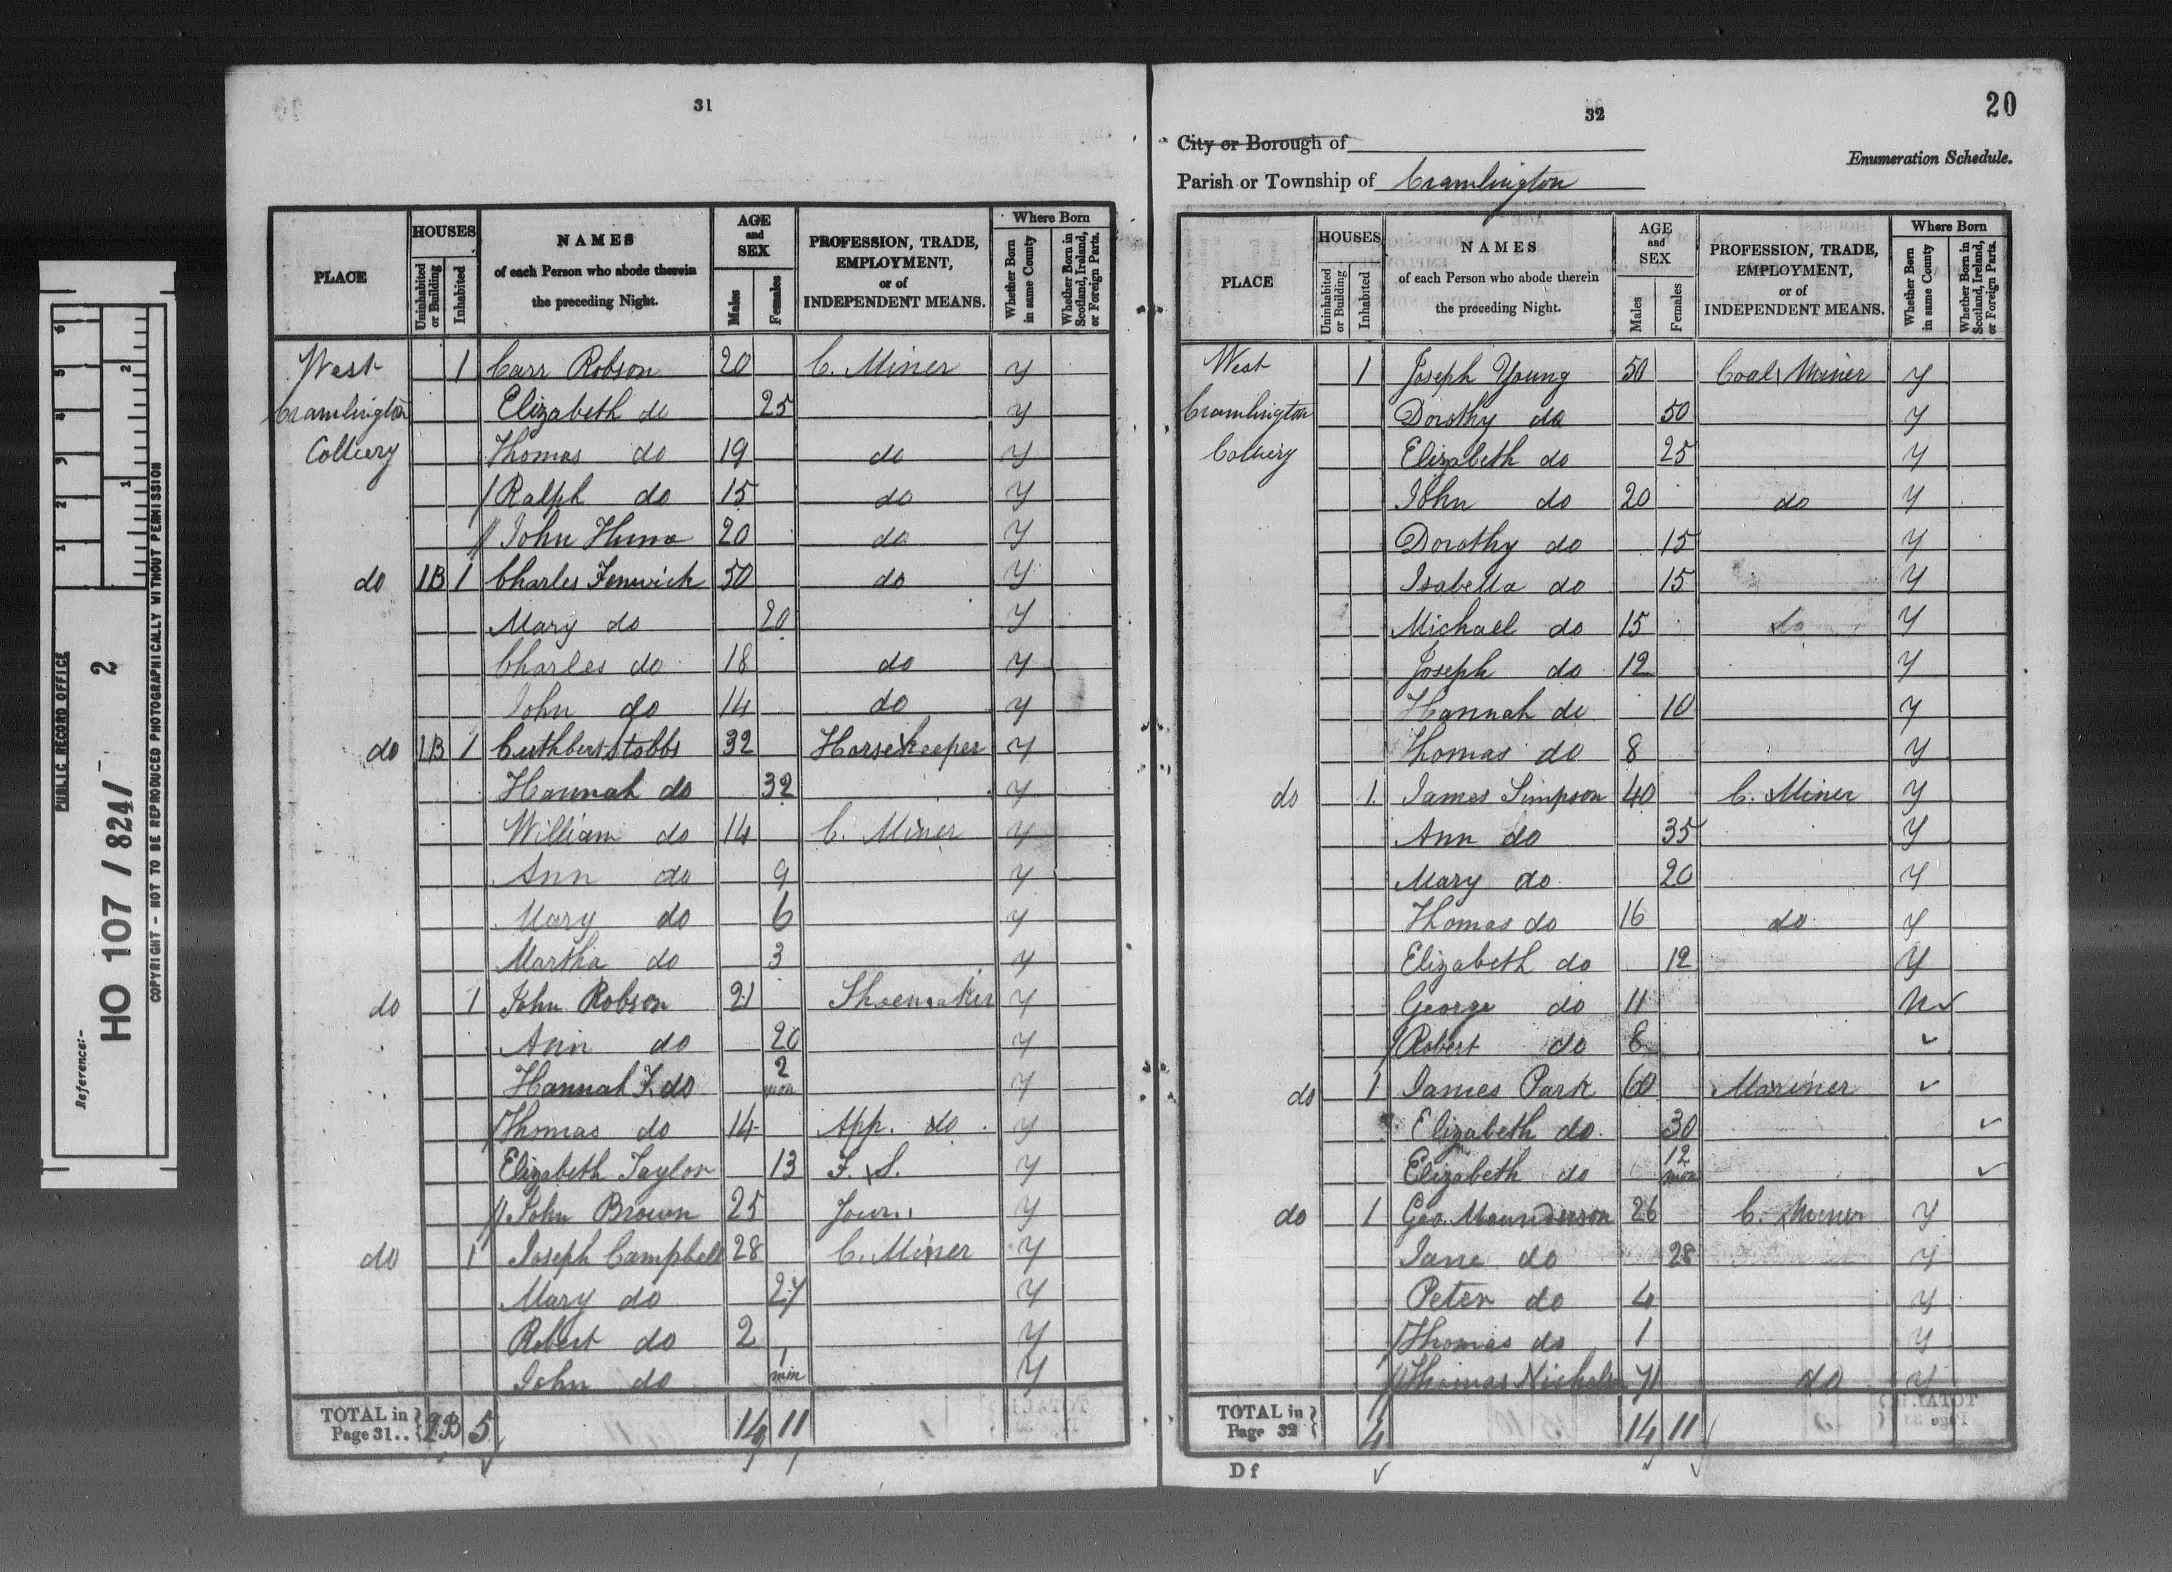 31
PLACE
HOUSES
Uninhabited or Building
Inhabited
NAMES of each Person who abode therein the preceding Night.
AGE and SEX
Males
Females
PROFESSION, TRADE, EMPLOYMENT, or of INDEPENDENT MEANS.
Where Born
Whether Born in same County
Whether Born in Scotland, Ireland, or Foreign Parts.
West 1 Carr Robson 20 C. Miner y
Cramlington Elizabeth do 25 y
Colliery Thomas do 19 do y
/ Ralph do 15 do y
// John Hume 20 do y
do 1B 1 Charles Fenwick 50 do y
Mary do 20 y
Charles do 18 do y
John do 14 do y
do 1B 1 Cuthbert Stobbs 32 Horsekeeper y
Hannah do 32 y
William do 14 C. Miner y
Ann do 9 y
Mary do 6 y
Martha do 3 y
do 1 John Robson 21 Shoemaker y
Ann do 20 y
Hannah F. do 2 mon y
/ Thomas do 14 App. do y
Elizabeth Taylor 13 F. S. y
// John Brown 25 Jour. y
do 1 Joseph Campbell 28 C. Miner y
Mary do 27 y
Robert do 2 y
John do 1 y
TOTAL in Page 31.. 2B 5 14 11
32
20
City or Borough of
Enumeration Schedule.
Parish or Township of Cramlington
PLACE
HOUSES
Uninhabited or Building
Inhabited
NAMES of each Person who abode therein the preceding Night.
AGE and SEX
Males
Females
PROFESSION, TRADE, EMPLOYMENT, or of INDEPENDENT MEANS.
Where Born
Whether Born in same County
Whether Born in Scotland, Ireland, or Foreign Parts.
West 1 Joseph Young 50 Coal Miner y
Cramlington Dorothy do 50 y
Colliery Elizabeth do 25 y
John do 20 do y
Dorothy do 15 y
Isabella do 15 y
Michael do 15 do y
Joseph do 12 y
Hannah do 10 y
Thomas do 8 y
do 1 James Simpson 40 C. Miner y
Ann do 35 y
Mary do 20 y
Thomas do 16 do y
Elizabeth do 12 y
George do 11 N
/ Robert do 8
do 1 James Park 60 Mariner
Elizabeth do 30
Elizabeth do 12 mon
do 1 Geo. 26 C. Miner y
Jane do 28 y
Peter do 4 y
/ Thomas do 1 y
// Thomas 71 do y
TOTAL in Page 32 4 14 11
D f
PUBLIC RECORD OFFICE
Reference:-
HO 107 / 824 / 2
COPYRIGHT - NOT TO BE REPRODUCED PHOTOGRAPHICALLY WITHOUT PERMISSION
1 2 3 4 5 6
1 2